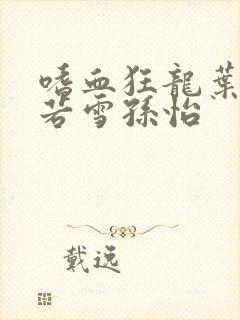 嗜血狂龍葉
若雪孫怡
戴逸